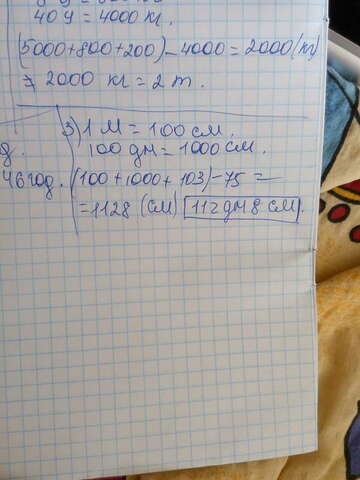 40 ц = 4000 кг.
(5000+800+200)-4000=2000(кг)
= 2000 кг = 2 т.
3) 1 м = 100 см.
100 дм = 1000 см.
46 год. (100+1000+103)-75 =
=1128 (см) 112 дм 8 см.